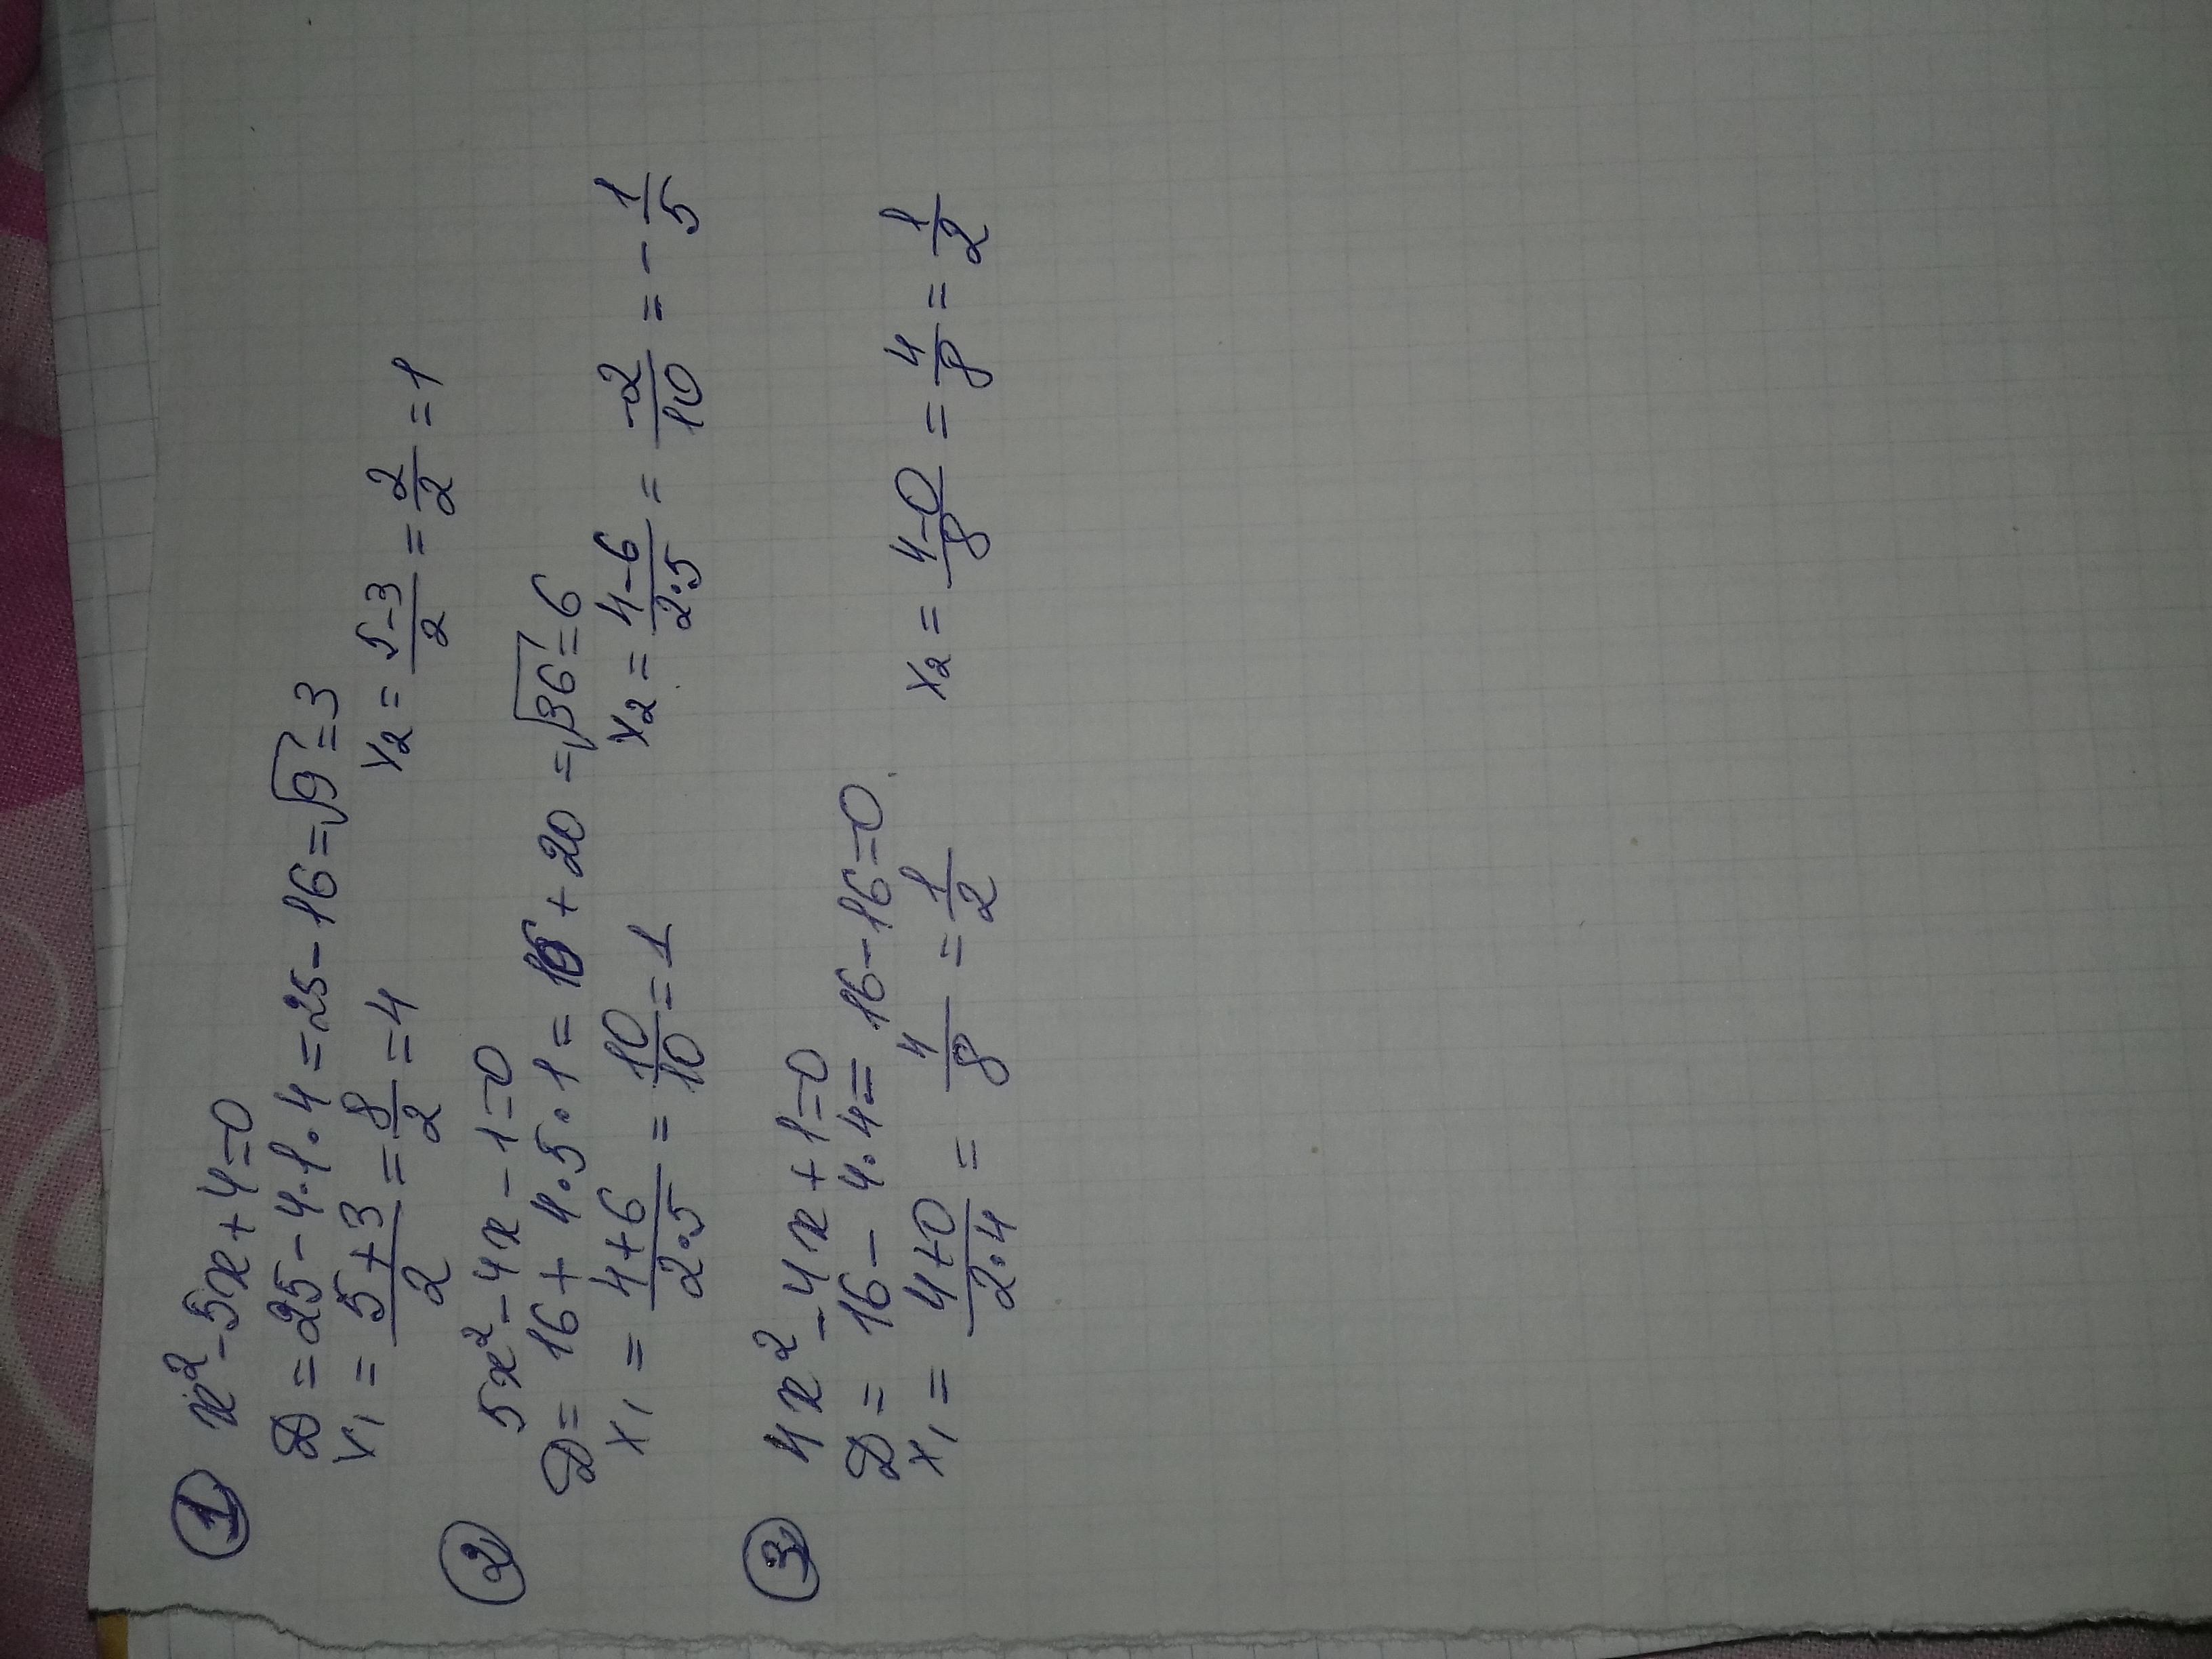 ① x² - 5x + 4 = 0
D = 25 - 4 · 1 · 4 = 25 - 16 = √9 = 3
x₁ = (5+3)/2 = 8/2 = 4 x₂ = (5-3)/2 = 2/2 = 1
② 5x² - 4x - 1 = 0
D = 16 + 4 · 5 · 1 = 16 + 20 = √36 = 6
x₁ = (4+6)/(2·5) = 10/10 = 1 x₂ = (4-6)/(2·5) = -2/10 = -1/5
③ 4x² - 4x + 1 = 0
D = 16 - 4 · 4 = 16 - 16 = 0
x₁ = (4+0)/(2·4) = 4/8 = 1/2 x₂ = (4-0)/8 = 4/8 = 1/2